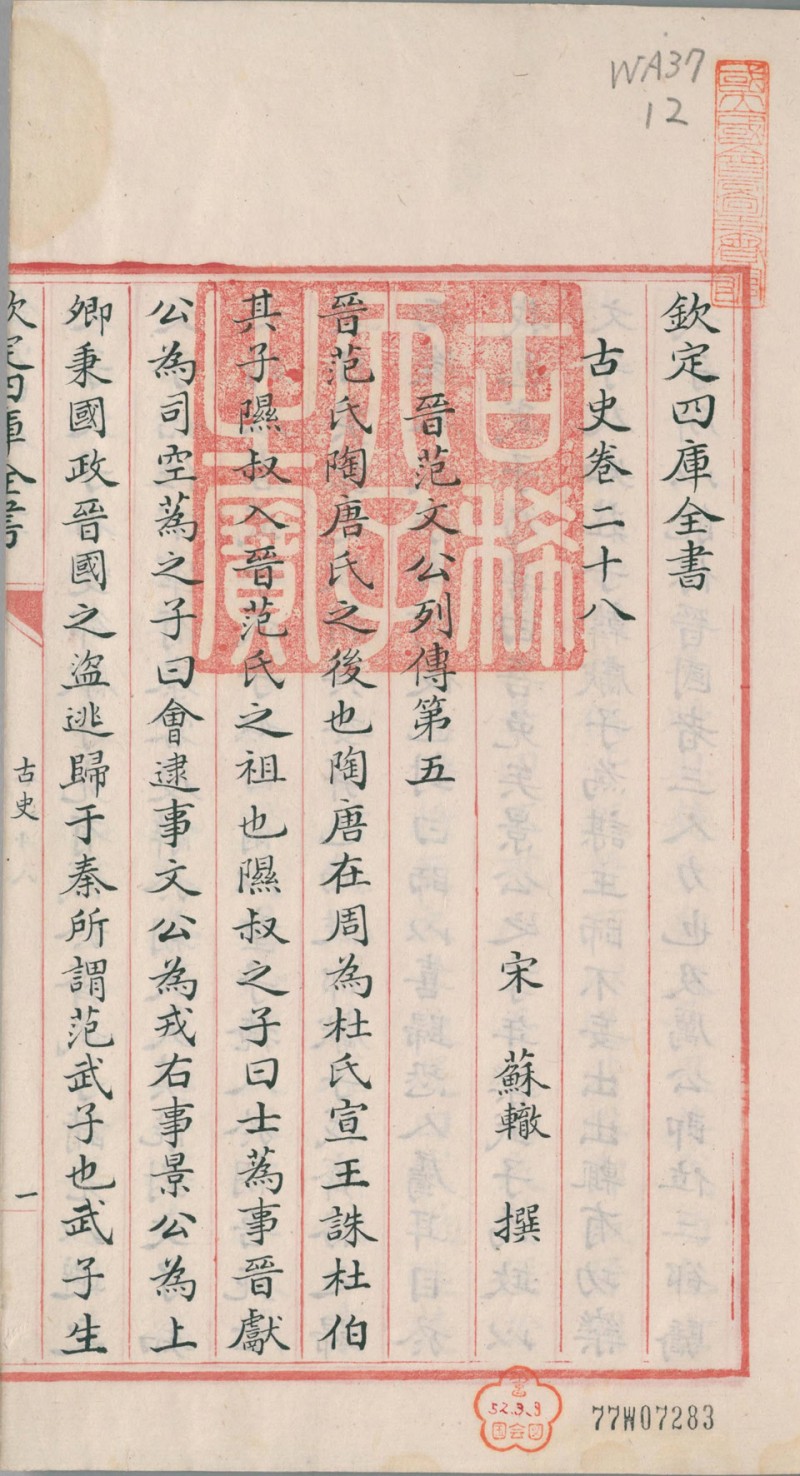 WA37
12
國立國會圖書館
欽定四庫全書
古史卷二十八
宋 蘇轍 撰
晉范文公列傳第五
晉范氏陶唐氏之後也陶唐在周為杜氏宣王誅杜伯
其子隰叔入晉范氏之祖也隰叔之子曰士蒍事晉獻
公為司空蒍之子曰會逮事文公為戎右事景公為上
卿秉國政晉國之盜逃歸于秦所謂范武子也武子生
欽定四庫全書
古史
一
古稀天子之寶
52.9.9
國會
圖書
77W07283